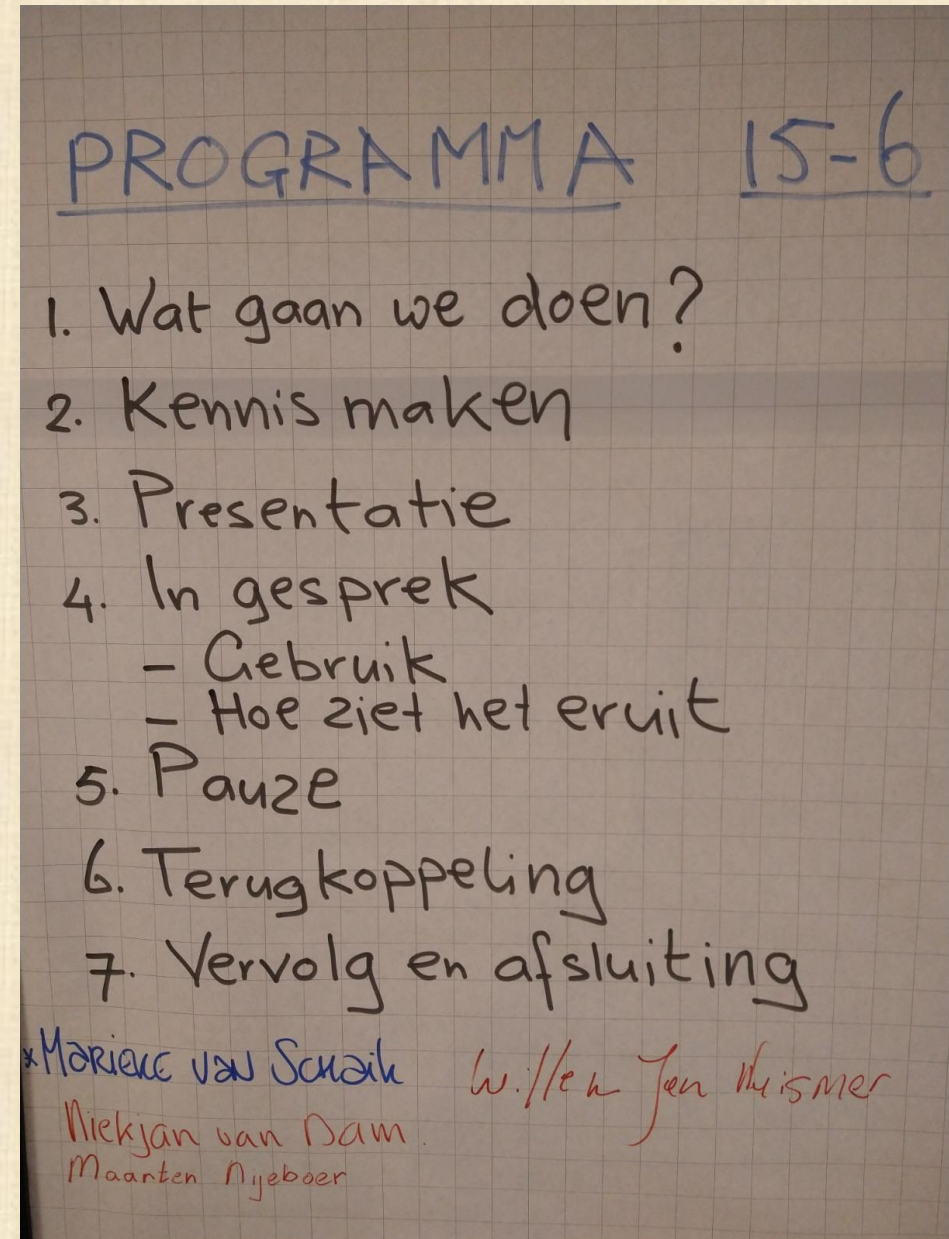 PROGRAMMA 15-6
1. Wat gaan we doen?
2. Kennis maken
3. Presentatie
4. In gesprek
- Gebruik
- Hoe ziet het eruit
5. Pauze
6. Terugkoppeling
7. Vervolg en afsluiting
*Marieke van Schaik
Willem Jan
Niekjan van Dam.
Maarten Nyeboer